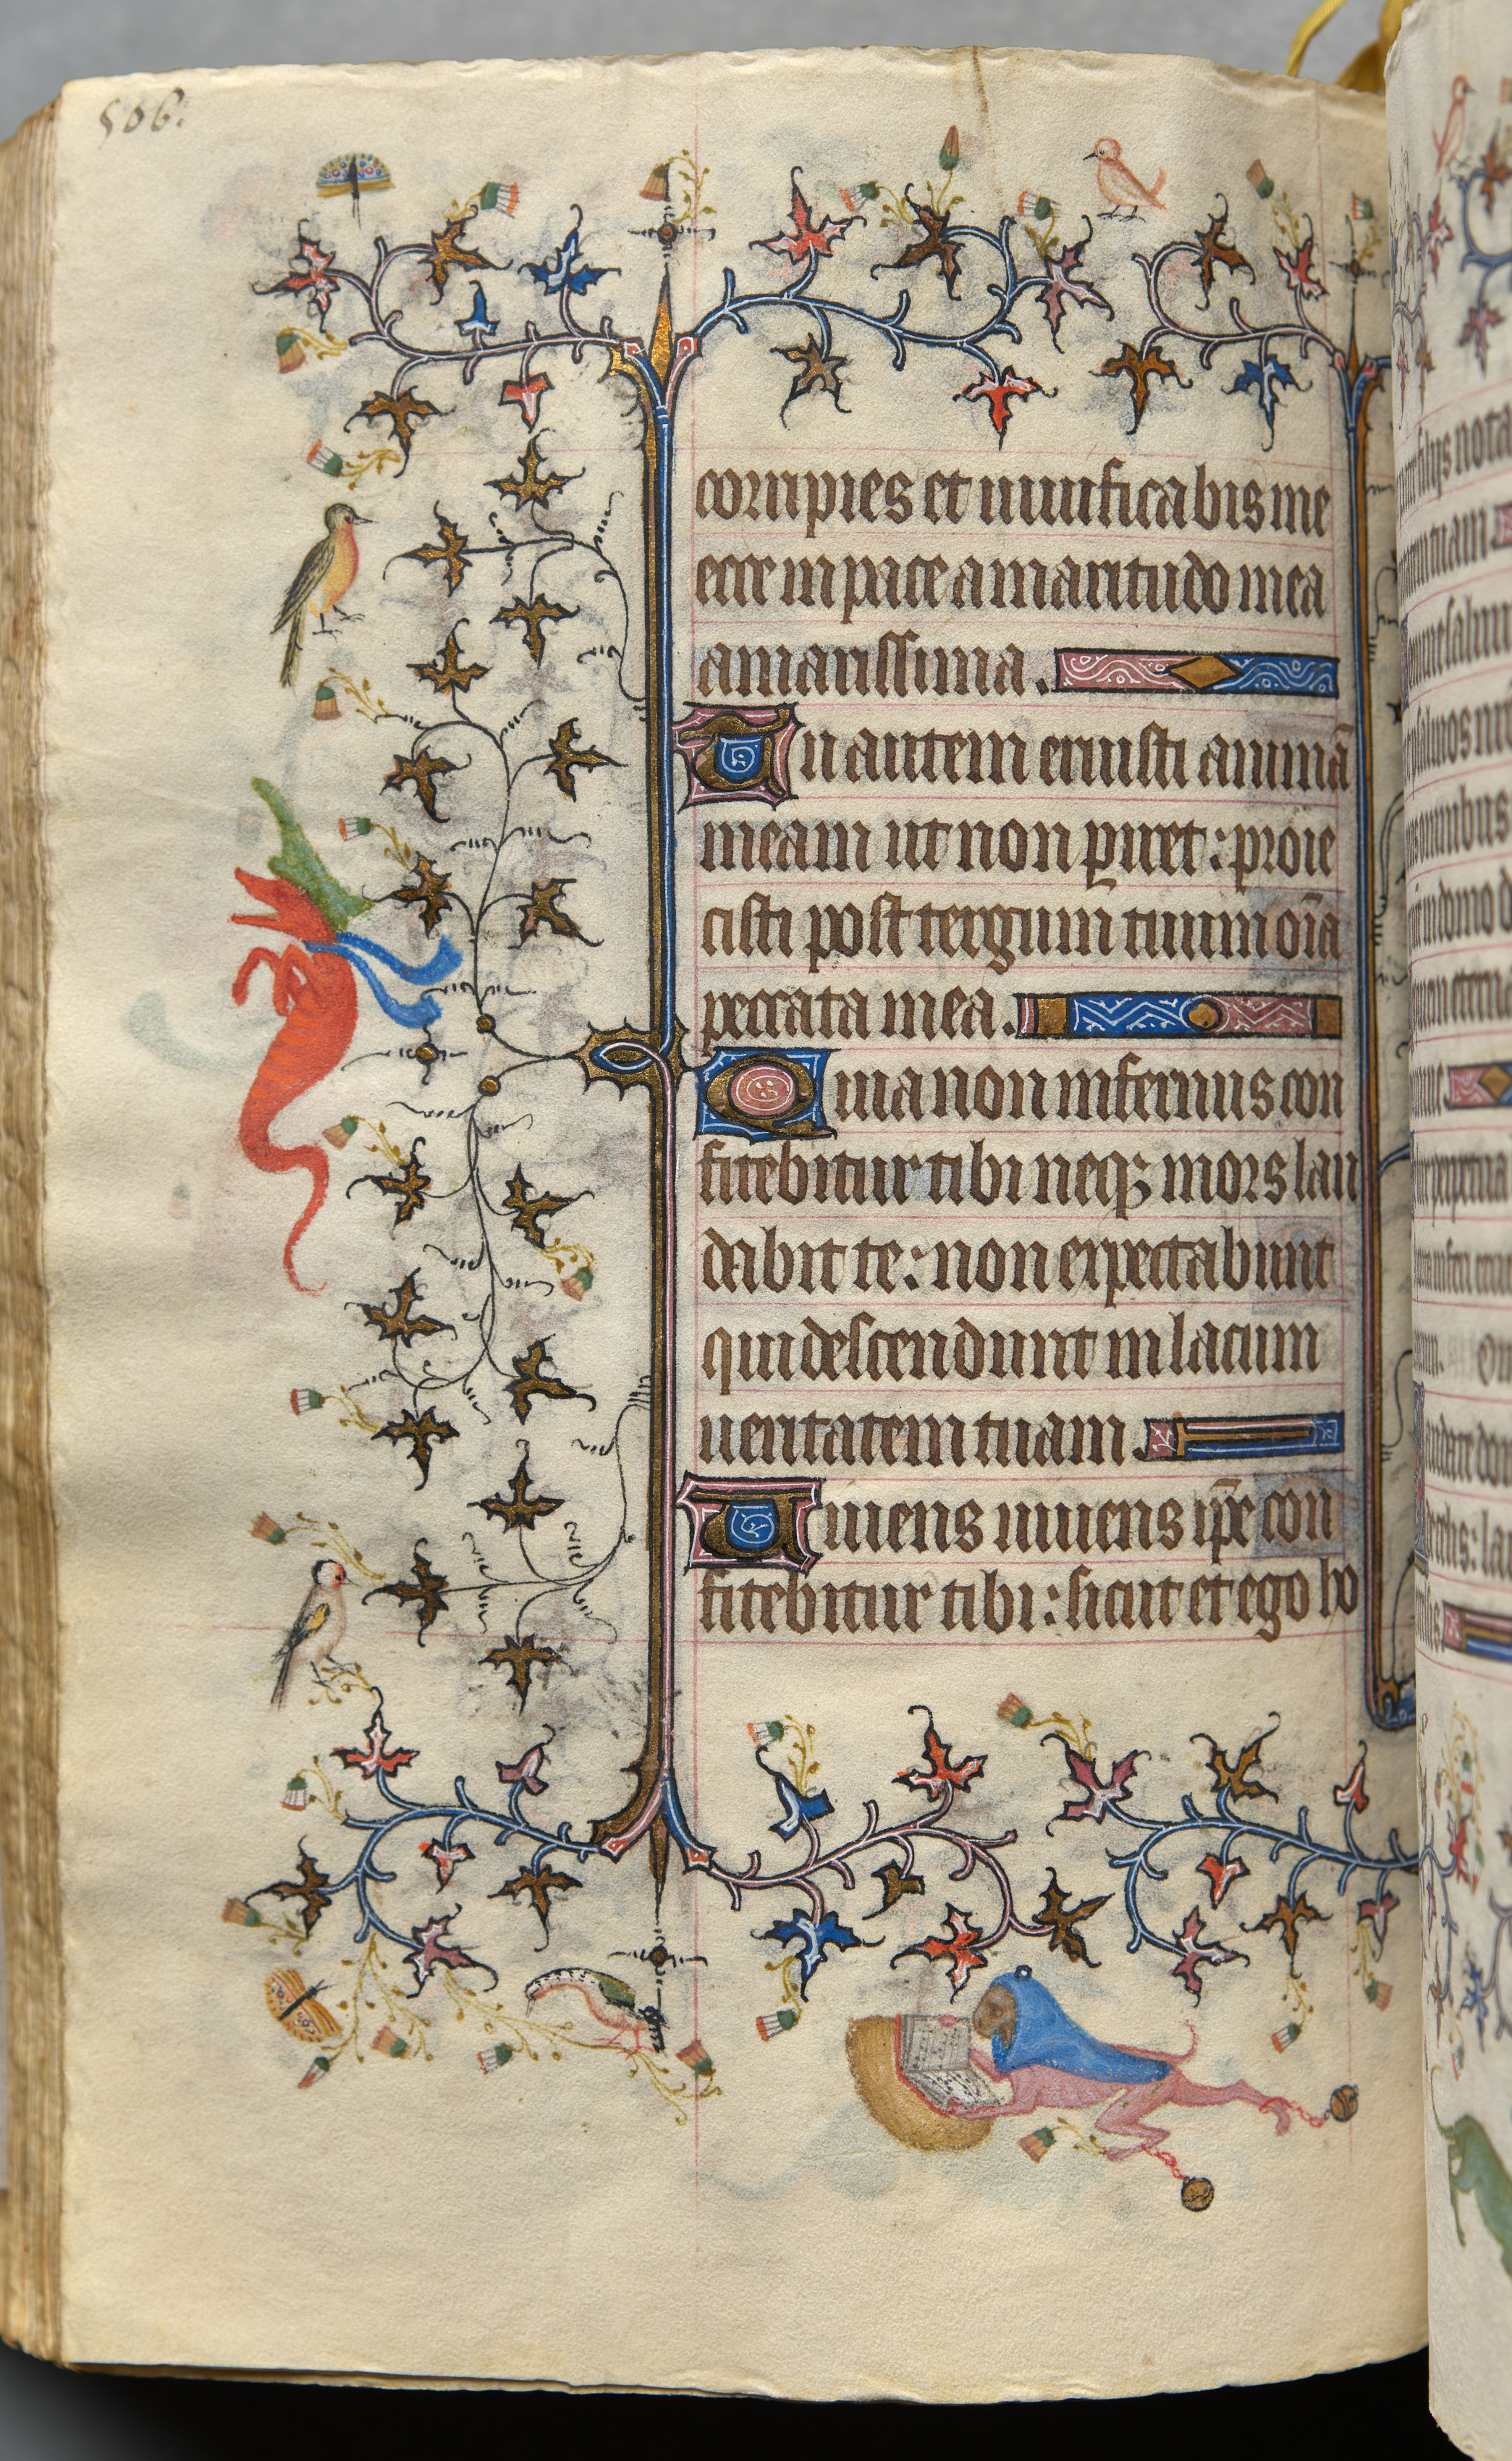 506.
corripies et uiuificabis me
ecce in pace amaritudo mea
amarissima.
Tu autem eruisti animā
meam ut non ꝑiret: proie
cisti post tergum tuum oīa
peccata mea.
Quia non infernus con
fitebitur tibi neqꝫ mors lau
dabit te: non expectabunt
qui descendunt in lacum
ueritatem tuam.
Uiuens uiuens ip̄e con
fitebitur tibi: sicut et ego ho
filijs nota
tuam
omnibus
in domo d